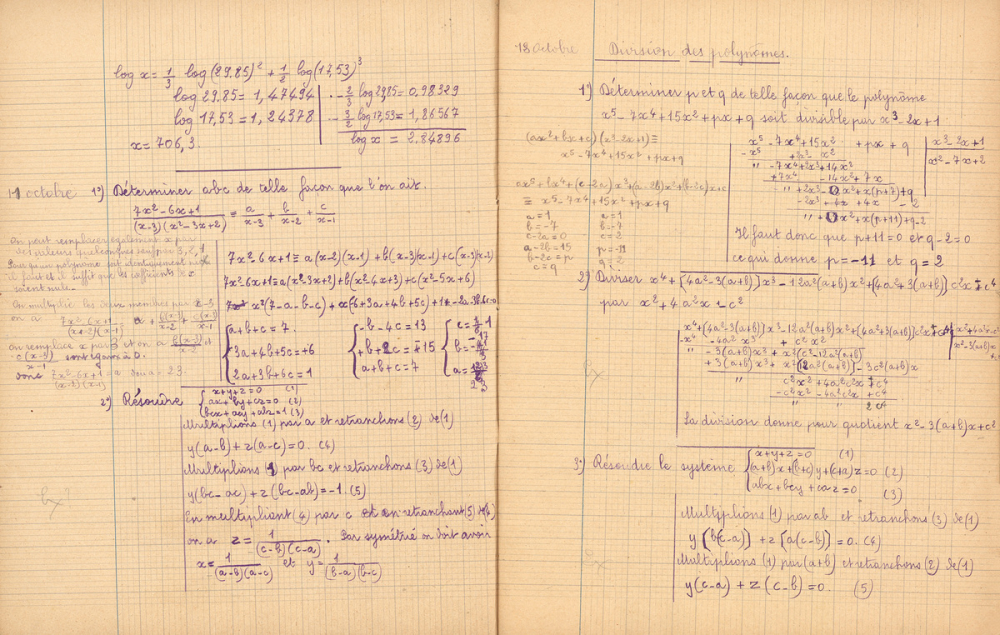 log x = 1/3 log(29.85)² + 1/2 log(17,53)³
log 29.85 = 1,47494
2/3 log 29,85 = 0,98329
log 17,53 = 1,24378
3/2 log 17,53 = 1,86567
x = 706,3.
log x = 2.84896
11 octobre
1°) Déterminer abc de telle façon que l'on ait.
(7x²-6x+1)/((x-3)(x²-3x+2)) ≡ a/(x-3) + b/(x-2) + c/(x-1)
On peut remplacer également x par
des valeurs quelconques
nul il suffit que les coefficients de x
soient nuls.
7x²-6x+1 = a(x-2)(x-1) + b(x-3)(x-1) + c(x-3)(x-2)
7x²-6x+1 = a(x²-3x+2) + b(x²-4x+3) + c(x²-5x+6)
x²(7-a-b-c) + x(6+3a+4b+5c) + 1-2a-3b-6c=0
On multiplie les deux membres par x-3
on a
on remplace x par 3 et on a
sont égaux à 0.
donc
a+b+c = 7.
3a+4b+5c = +6
2a+3b+6c = 1
-b-4c = 13
+b+2c = -15
a+b+c = 7
c = 1
2°) Résoudre
x+y+z=0 (1)
ax+by+cz=0 (2)
bcx+acy+abz=1 (3)
Multiplions (1) par a et retranchons (2) de (1)
y(a-b) + z(a-c) = 0. (4)
Multiplions 1) par bc et retranchons (3) de (1)
y(bc-ac) + z(bc-ab) = -1. (5)
En multipliant (4) par c et en retranchant (5) de (4)
on a z = 1/((c-b)(c-a)). Par symétrie on doit avoir
x = 1/((a-b)(a-c)) et y = 1/((b-a)(b-c))
18 octobre
Division des polynômes.
1°) Déterminer p et q de telle façon que le polynôme
x⁵-7x⁴+15x²+px+q soit divisible par x³-2x+1
(ax²+bx+c)(x³-2x+1) ≡
x⁵-7x⁴+15x²+px+q
ax⁵+bx⁴+(c-2a)x³+(a-2b)x²+(b-2c)x+c
≡ x⁵-7x⁴+15x²+px+q
a = 1
b = -7
c-2a = 0
a-2b = 15
b-2c = p
c = q
a = 1
b = -7
c = 2
p = -11
q = 2
x⁵-7x⁴+15x² +px+q
x³-2x+1
x²-7x+2
-7x⁴+2x³+14x²
+7x⁴ -14x²+7x
+2x³-0x²+x(p+7)+q
-2x³+4x -2
+0x²+x(p+11)+q-2
Il faut donc que p+11=0 et q-2=0
ce qui donne p = -11 et q = 2
2°) Diviser x⁴+[4a²-3(a+b)]x³-12a²(a+b)x²+[4a²+3(a+b)]c²x-c⁴
par x²+4a²x-c²
x⁴+[4a²-3(a+b)]x³-12a²(a+b)x²+[4a²+3(a+b)]c²x-c⁴
-x⁴ -4a²x³ + c²x²
-3(a+b)x³+x²[c²-12a²(a+b)]
+3(a+b)x³+x²[12a²(a+b)]-3c²(a+b)x
c²x²+4a²c²x-c⁴
-c²x²-4a²c²x+c⁴
La division donne pour quotient x²-3(a+b)x+c²
3°) Résoudre le système
x+y+z=0 (1)
(a+b)x+(b+c)y+(c+a)z=0 (2)
abx+bcy+caz=0 (3)
Multiplions (1) par ab et retranchons (3) de (1)
y[b(c-a)] + z[a(c-b)] = 0. (4)
Multiplions (1) par (a+b) et retranchons (2) de (1)
y(c-a) + z(c-b) = 0. (5)